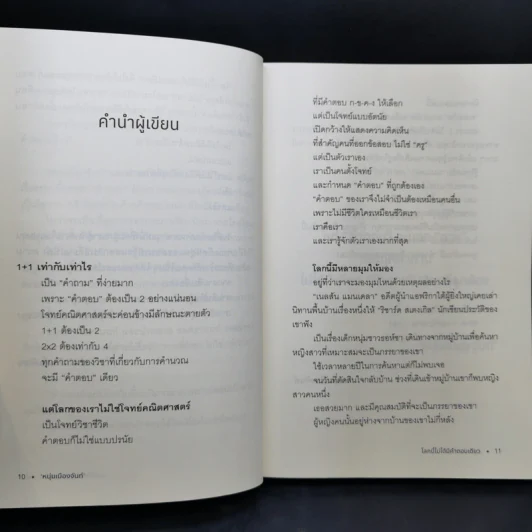 คำนำผู้เขียน
1+1 เท่ากับเท่าไร
เป็น "คำถาม" ที่ง่ายมาก
เพราะ "คำตอบ" ต้องเป็น 2 อย่างแน่นอน
โจทย์คณิตศาสตร์จะค่อนข้างมีลักษณะตายตัว
1+1 ต้องเป็น 2
2x2 ต้องเท่ากับ 4
ทุกคำถามของวิชาที่เกี่ยวกับการคำนวณ
จะมี "คำตอบ" เดียว
แต่โลกของเราไม่ใช่โจทย์คณิตศาสตร์
เป็นโจทย์วิชาชีวิต
คำตอบก็ไม่ใช่แบบปรนัย
10 • 'หนุ่มเมืองจันท์'
ที่มีคำตอบ ก-ข-ค-ง ให้เลือก
แต่เป็นโจทย์แบบอัตนัย
เปิดกว้างให้แสดงความคิดเห็น
ที่สำคัญคนที่ออกข้อสอบ ไม่ใช่ "ครู"
แต่เป็นตัวเราเอง
เราเป็นคนตั้งโจทย์
และกำหนด "คำตอบ" ที่ถูกต้องเอง
"คำตอบ" ของเราจึงไม่จำเป็นต้องเหมือนคนอื่น
เพราะไม่มีชีวิตใครเหมือนชีวิตเรา
เราคือเรา
และเรารู้จักตัวเราเองมากที่สุด
โลกนี้มีหลายมุมให้มอง
อยู่ที่ว่าเราจะมองมุมไหนด้วยเหตุผลอย่างไร
"เนลสัน แมนเดลา" อดีตผู้นำแอฟริกาใต้ผู้ยิ่งใหญ่เคยเล่า
นิทานพื้นบ้านเรื่องหนึ่งให้ "ริชาร์ด สเตงเกิล" นักเขียนประวัติของ
เขาฟัง
เป็นเรื่องเด็กหนุ่มชาวซอห์ซา เดินทางจากหมู่บ้านเพื่อค้นหา
หญิงสาวที่เหมาะสมจะเป็นภรรยาของเขา
ใช้เวลาหลายปีในการค้นหาแต่ก็ไม่พบเจอ
จนวันที่ตัดสินใจกลับบ้าน ช่วงที่เดินเข้าหมู่บ้านเขาก็พบหญิง
สาวคนหนึ่ง
เธอสวยมาก และมีคุณสมบัติที่จะเป็นภรรยาของเขา
ผู้หญิงคนนั้นอยู่ห่างจากบ้านของเขาไม่กี่หลัง
โลกนี้ไม่ได้มีคำตอบเดียว • 11